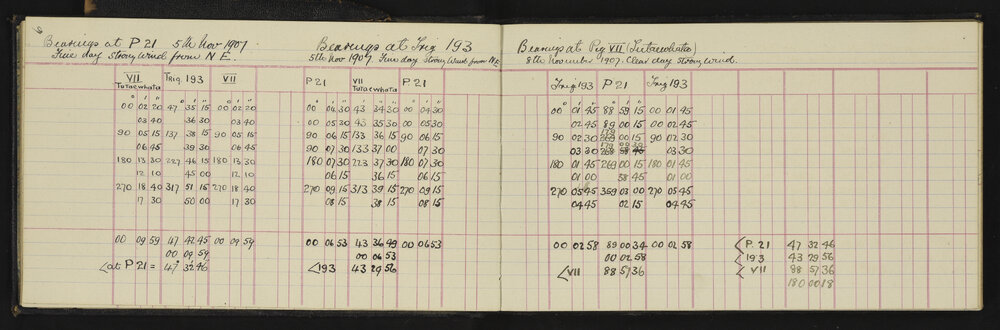 Bearings at P 21 5th Nov 1907
Fine day strong wind from N E.
VII Trig 193 VII
Tutaewhata
° ' " ° ' " ° ' "
00 02 20 47 35 15 00 02 20
03 40 36 30 03 40
90 05 15 137 38 15 90 05 15
06 45 39 30 06 45
180 13 30 227 46 15 180 13 30
12 10 45 00 12 10
270 18 40 317 51 15 270 18 40
17 30 50 00 17 30
00 09 59 47 42 45 00 09 59
00 09 59
<at P 21 = 47 32 46
Bearings at Trig 193
5th Nov 1907 Fine day strong wind from N E
P 21 VII P 21
Tutaewhata
° ' " ° ' " ° ' "
00 04 30 43 34 30 00 04 30
00 05 30 43 35 30 00 05 30
90 06 15 133 36 15 90 06 15
90 07 30 133 37 00 07 30
180 07 30 223 37 30 180 07 30
06 15 36 15 06 15
270 09 15 313 39 15 270 09 15
08 15 38 15 08 15
00 06 53 43 36 49 00 06 53
00 06 53
<193 43 29 56
Bearings at Pig VII (Tutaewhata)
8th November 1907. Clear day strong wind.
Trig 193 P 21 Trig 193
° ' " ° ' " ° ' "
00 01 45 88 59 15 00 01 45
02 45 89 00 15 00 02 45
179
90 02 30 269 00 15 90 02 30
179 00 39
03 30 268 58 45 03 30
180 01 45 269 00 15 180 01 45
01 00 58 45 01 00
270 05 45 359 03 00 270 05 45
04 45 02 15 04 45
00 02 58 89 00 34 00 02 58
00 02 58
<VII 88 57 36
<P. 21 47 32 46
<193 43 29 56
<VII 88 57 36
180 00 18